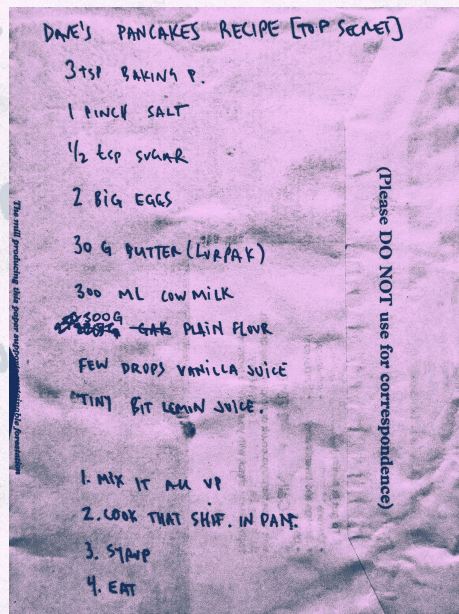 DAVE'S PANCAKES RECIPE [TOP SECRET]
3 tsp BAKING P.
1 PINCH SALT
1/2 tsp SUGAR
2 BIG EGGS
30 G BUTTER (LURPAK)
300 ML COW MILK
300G
PLAIN FLOUR
FEW DROPS VANILLA JUICE
TINY BIT LEMON JUICE.
1. MIX IT ALL UP
2. COOK THAT SHIT. IN PAN.
3. SYRUP
4. EAT
(Please DO NOT use for correspondence)
The mill producing this paper supports sustainable forestation